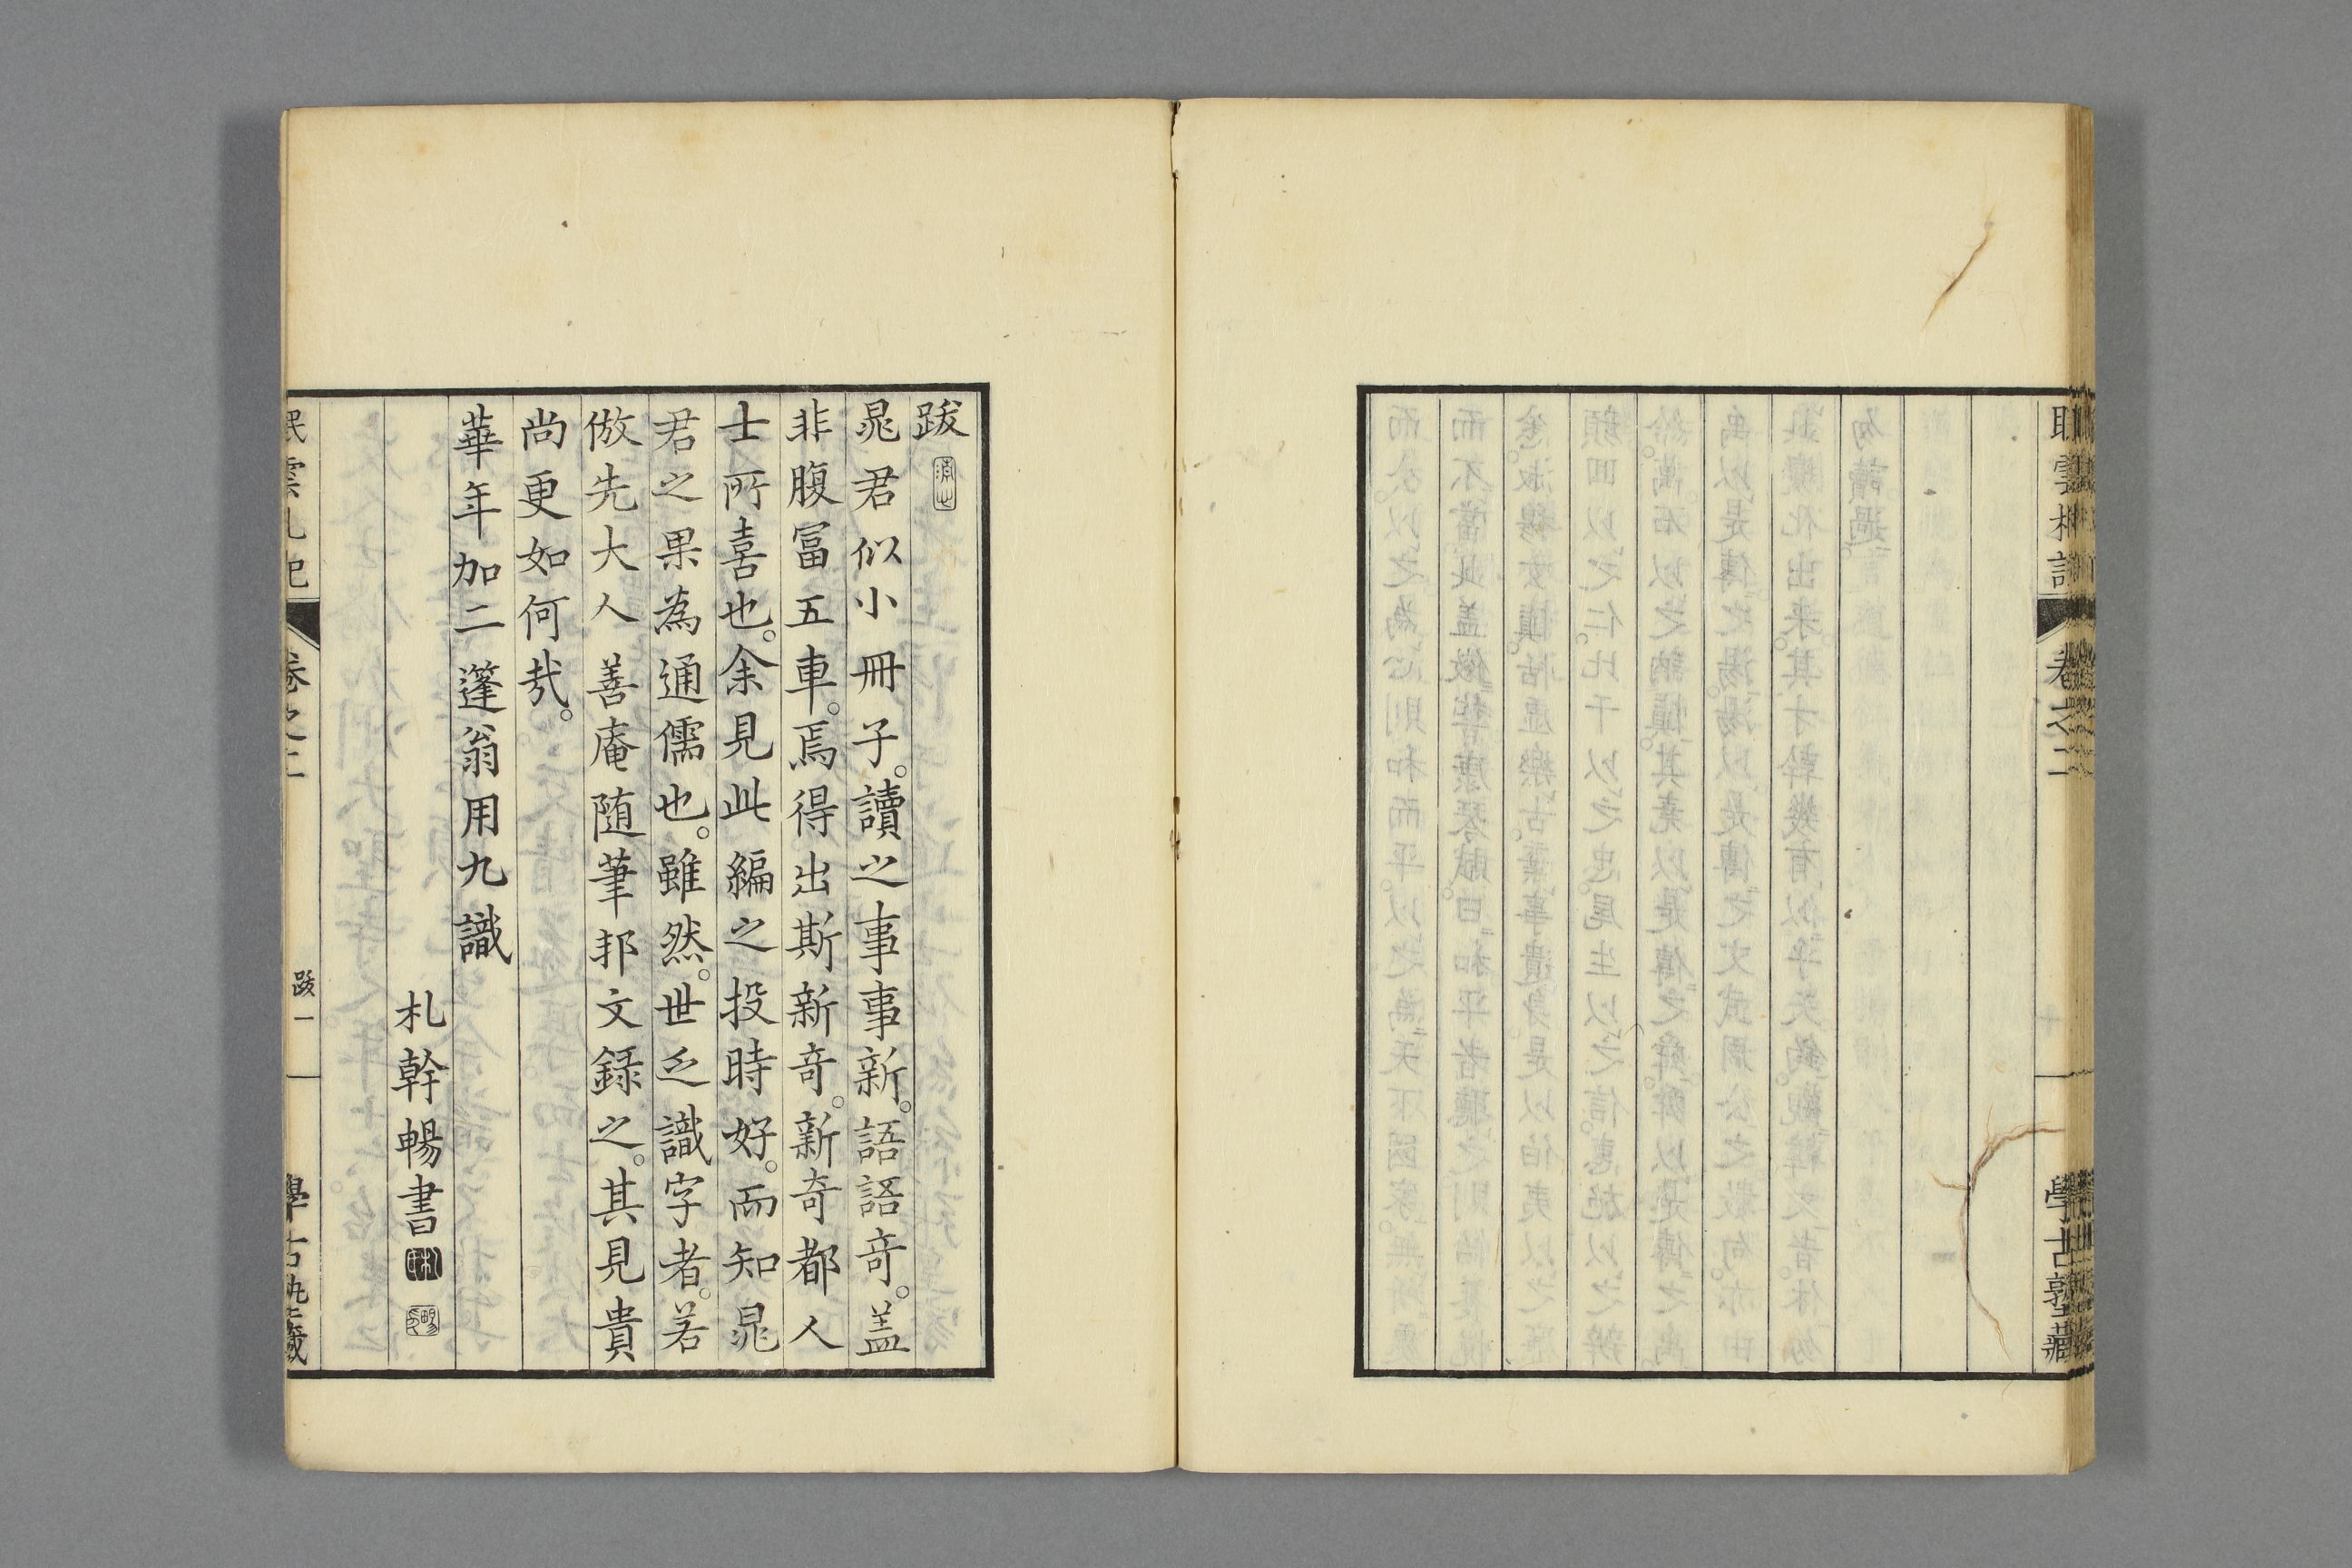 卷之二
學古塾藏
跋
晁君似小冊子。讀之事事新。語語奇。蓋
非腹冨五車。焉得出斯新奇。新奇都人
士所喜也。余見此編之投時好。而知晁
君之果為通儒也。雖然。世乏識字者。若
倣先大人善庵随筆邦文録之。其見貴
尚更如何㢤。
華年加二蓬翁用九識
札幹暢書
卷之二
跋一
學古塾藏